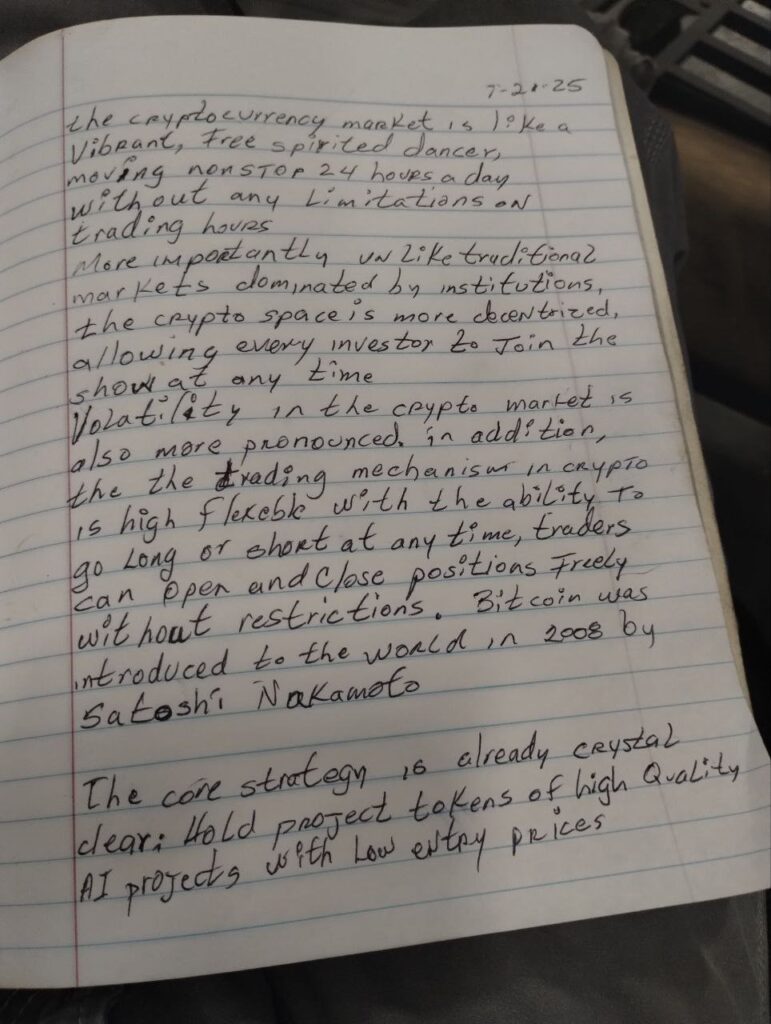 7-21-25
the cryptocurrency market is like a
Vibrant, free spirited dancer,
moving nonstop 24 hours a day
without any Limitations on
trading hours
More importantly unlike traditional
markets dominated by institutions,
the crypto space is more decentrized,
allowing every investor to Join the
show at any time
Volatility in the crypto market is
also more pronounced. in addition,
the the trading mechanism in crypto
is high flexeble with the ability to
go Long or short at any time, traders
can open and Close positions Freely
without restrictions. Bitcoin was
introduced to the world in 2008 by
Satoshi Nakamoto
The core strategy is already crystal
clear: Hold project tokens of high Quality
AI projects with Low entry prices